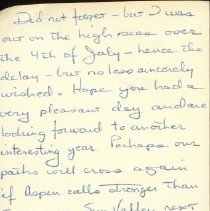 Did not forget - but I was
out on the high seas over
the 4th of July - hence the
delay - but no less sincerely
wished. Hope you had a
very pleasant day and are
looking forward to another
interesting year. Perhaps our
paths will cross again
if Aspen calls stronger than
Sun Valley next